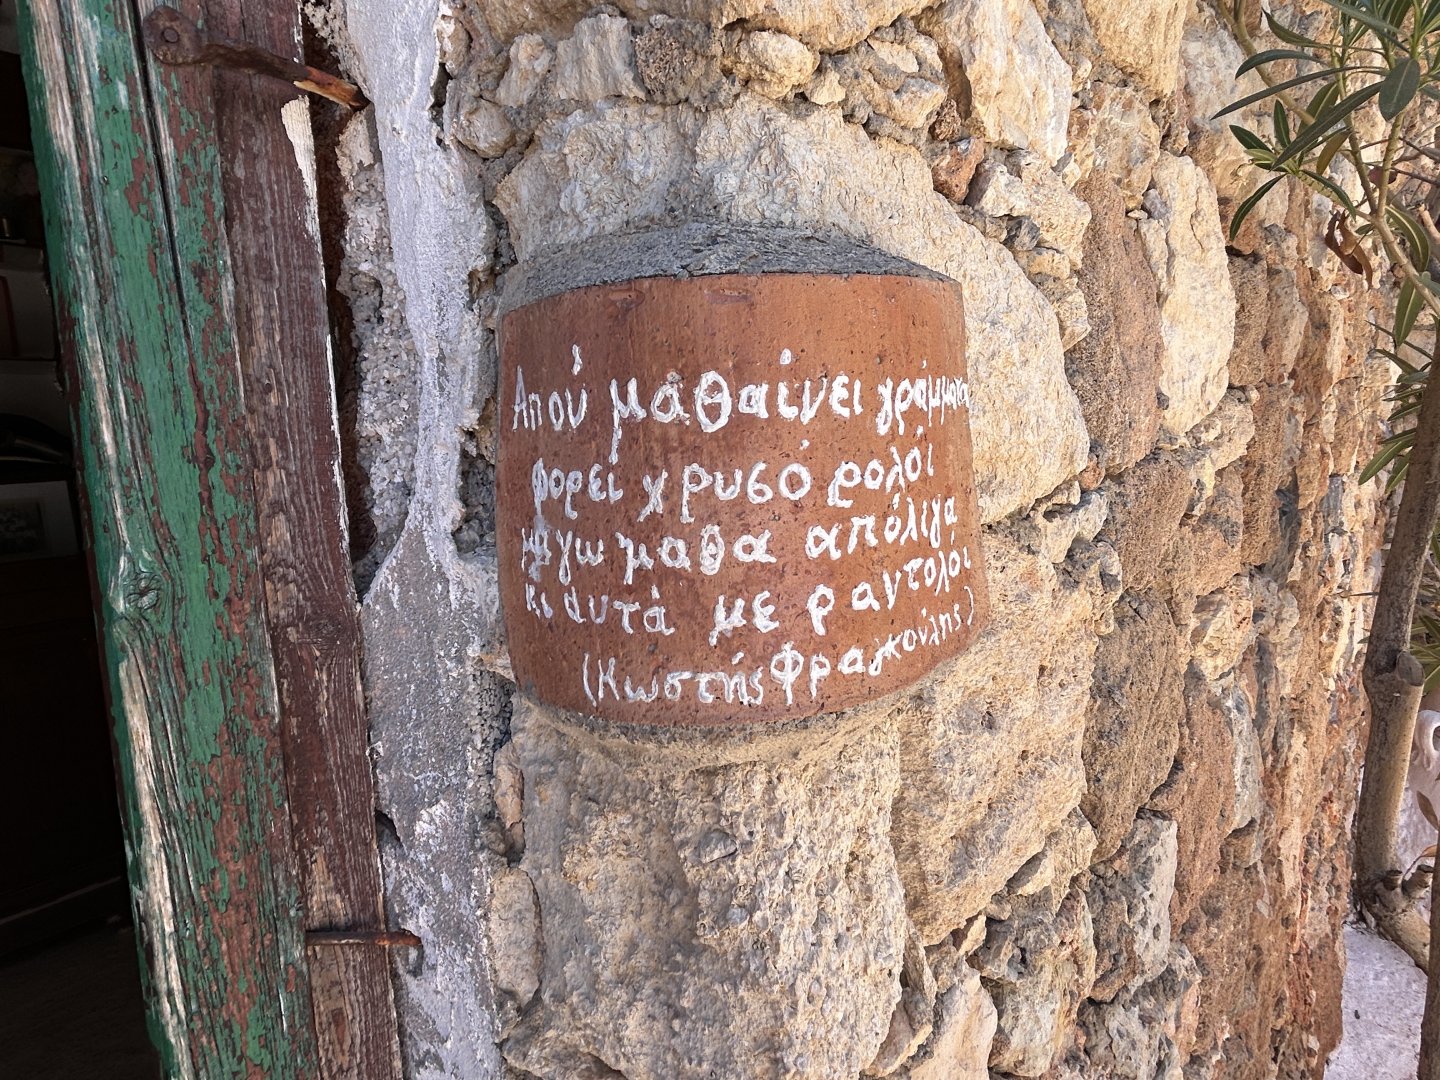 Απού μαθαίνει γράμματα
φορεί χρυσό ρολόι
μα 'γω 'μαθα απόλιγα
κι αυτά με ραντολόι
(Κωστής Φραγκούλης)